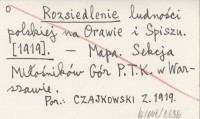 o Rozsiedlenie ludności
polskiej na Orawie i Spiszu.
[1919]. — Mapa. Sekcja
Miłośników Gór P.T.K. w War-
szawie.
Por.: CZAJKOWSKI Z. 1919.